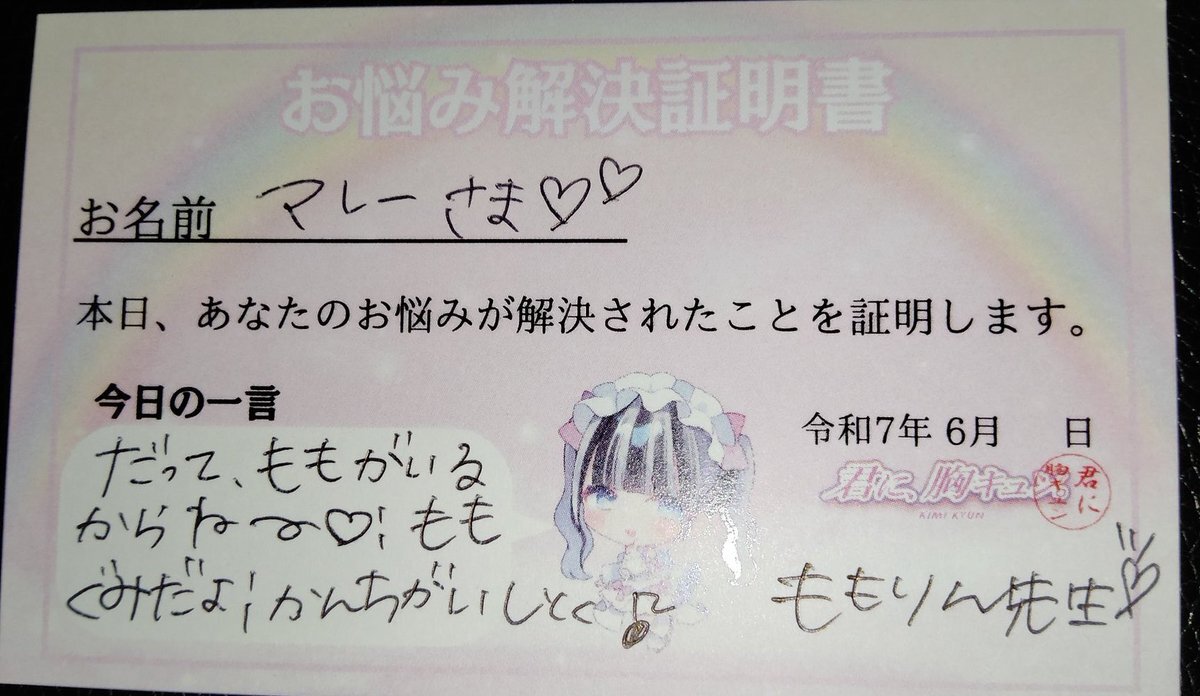 お悩み解決証明書
お名前 マレーさま♡♡
本日、あなたのお悩みが解決されたことを証明します。
今日の一言
だって、ももがいる
からねー♡! もも
ぐみだよ! かんちがいしとく♫
令和7年 6月 日
君に、胸キュン
KIMI KYUN
君に
胸キュン
ももりん先生♡